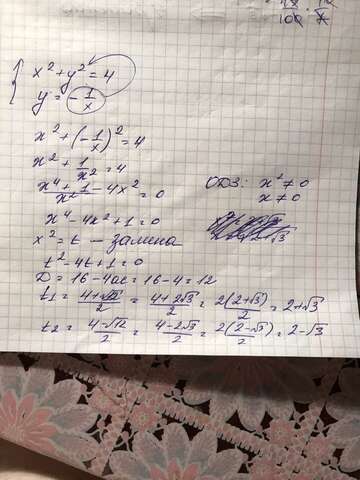 100
x² + y² = 4
y = - 1/x
x² + (- 1/x)² = 4
x² + 1/x² = 4
(x⁴ + 1 - 4x²)/x² = 0
ОДЗ: x² ≠ 0
x ≠ 0
x⁴ - 4x² + 1 = 0
x² = t - замена
t² - 4t + 1 = 0
D = 16 - 4ac = 16 - 4 = 12
t₁ = (4+√12)/2 = (4+2√3)/2 = 2(2+√3)/2 = 2+√3
t₂ = (4-√12)/2 = (4-2√3)/2 = 2(2-√3)/2 = 2-√3